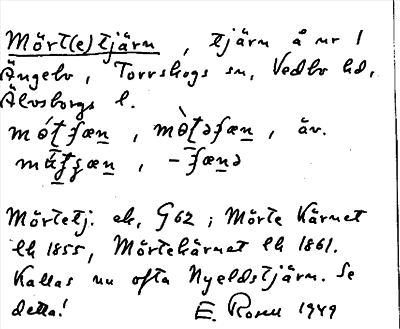 Mört(e)tjärn, tjärn å nr 1
Ängebo, Torrskogs sn, Vedbo hd,
Älvsborgs l.
äv.
Mörtetj. ek, G62; Mörte Kärnet
lk 1855, Mörtekärnet lk 1861.
Kallas nu ofta Nyeldstjärn. Se
detta! E. Rosell 1949